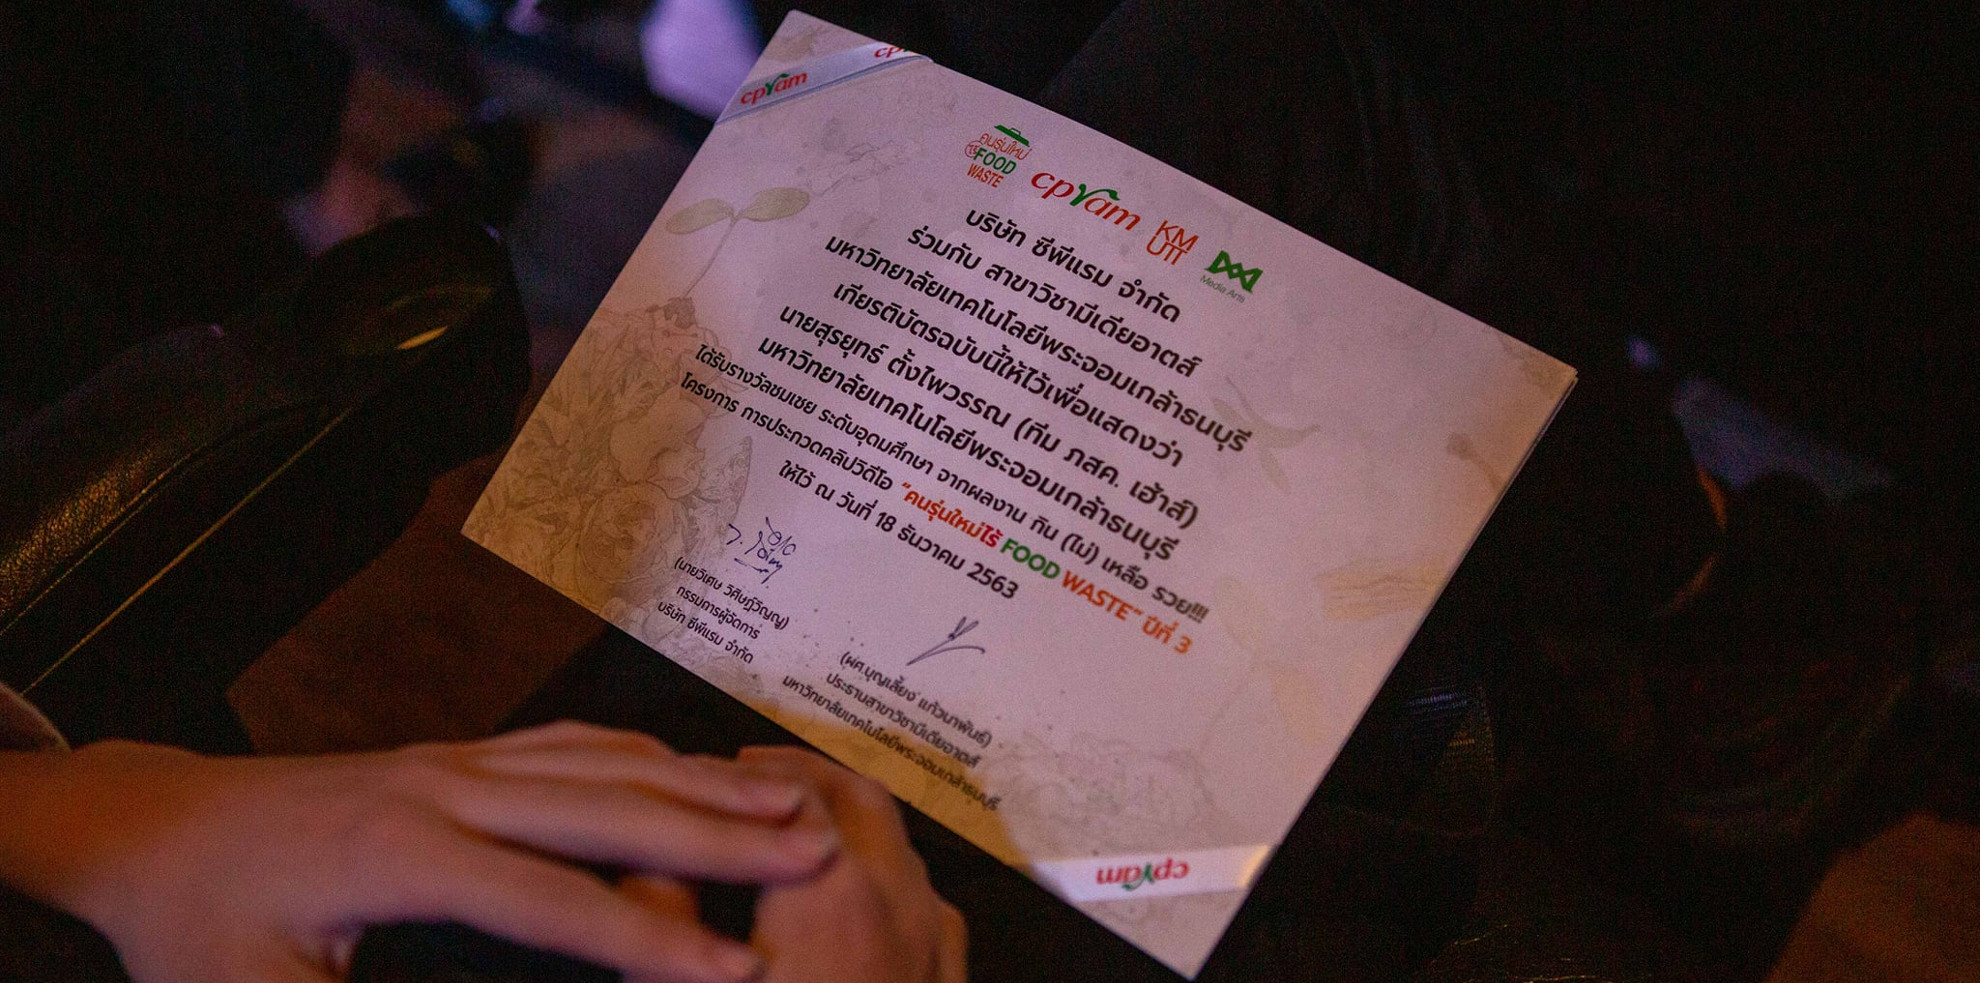 cpram
cpram
คนรุ่นใหม่
ไร้ FOOD
WASTE
cpram
KM
UTT
Media Arts
บริษัท ซีพีแรม จำกัด
ร่วมกับ สาขาวิชามีเดียอาตส์
มหาวิทยาลัยเทคโนโลยีพระจอมเกล้าธนบุรี
เกียรติบัตรฉบับนี้ให้ไว้เพื่อแสดงว่า
นายสุรยุทธ์ ตั้งไพวรรณ (ทีม ภสค. เฮ้าส์)
มหาวิทยาลัยเทคโนโลยีพระจอมเกล้าธนบุรี
ได้รับรางวัลชมเชย ระดับอุดมศึกษา จากผลงาน กิน (ไม่) เหลือ รวย!!!
โครงการ การประกวดคลิปวิดีโอ "คนรุ่นใหม่ไร้ FOOD WASTE" ปีที่ 3
ให้ไว้ ณ วันที่ 18 ธันวาคม 2563
(นายวิเศษ วิศิษฏ์วิญญู)
กรรมการผู้จัดการ
บริษัท ซีพีแรม จำกัด
(ผศ.บุญเลี้ยง แก้วนาพันธ์)
ประธานสาขาวิชามีเดียอาตส์
มหาวิทยาลัยเทคโนโลยีพระจอมเกล้าธนบุรี
cpram